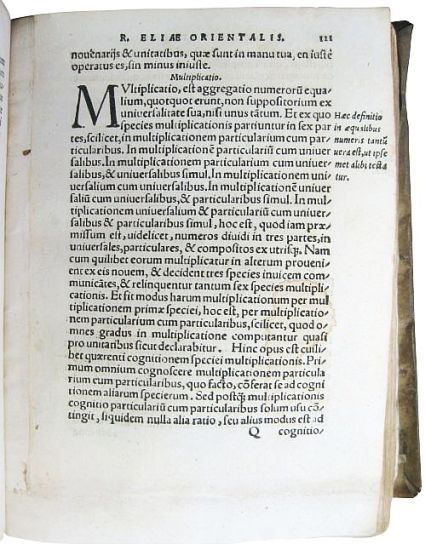 R. ELIAE ORIENTALIS. 121
nouẽnarijs & unitatibus, quæ sunt in manu tua, en iuste
operatus es, sin minus iniuste.
Multiplicatio.
MVltiplicatio, est aggregatio numerorũ equa-
lium, quotquot erunt, non suppositorium ex
uniuersalitate sua, nisi unus tãtum. Et ex quo
species multiplicationis partiuntur in sex par
tes, scilicet, in multiplicationem particularium cum par-
ticularibus. In multiplicationem particularium cum uniuer-
salibus. In multiplicationem particularium cum uniuer
salibus, & uniuersalibus simul. In multiplicationẽ uniuer
salium cum uniuersalibus. In multiplicationẽ uniuer
saliũ cum uniuersalibus & particularibus simul. In mul-
tiplicationem uniuersaliũ & particulariũ cum uniuer-
salibus & particularibus simul, hoc est, quod iam præ-
missum est, uidelicet, numeros diuidi in tres partes, in
uniuersales, particulares, & compositos ex utrisq;. Nam
cum quilibet eorum multiplicatur in alterum proueni-
ent ex eis nouem, & decident tres species inuicem com-
municãtes, & relinquentur tantum sex species multipli-
cationis. Et sit modus harum multiplicationum per mul
tiplicationem primæ speciei, hoc est, per multiplicatio-
nem particularium cum particularibus, scilicet, quod o-
mnes gradus in multiplicatione computantur quasi
pro unitatibus sicut declarabitur. Hinc opus est cuili-
bet quærenti cognitionem speciei multiplicationis. Pri-
mum omnium cognoscere multiplicationem particula
rium cum particularibus, quo facto, cõferat se ad cogni
tionem aliarum specierum. Sed postq̃ multiplicationis
cognitio particulariũ cum particularibus solum usu cõ-
tingit, siquidem nulla alia ratio, seu alius modus est ad
Q cognitio-
Hæc definitio
in æqualibus
numeris tantũ
uera est, ut ipse
met alibi testa
tur.